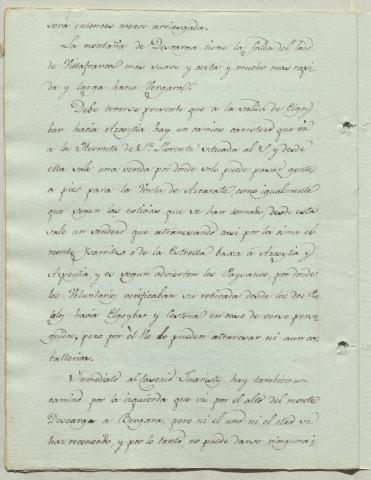 será entonces menos arriesgada.
La montaña de Descarga tiene la falda del lado
de Villafranca mas suave y corta y mucho mas rapi-
da y larga hacia Vergara.
Debe tenerse presente que a la salida de Elgoy-
bar hacia Azcoytia hay un camino carretero que vá
a la Hermita de Sn. Llorente situada al S, y desde
ella sale una vereda por donde solo puede pasar gente
a pie para la Venta de Azcarate como igualmente
que segun las noticias que se han tomado, desde esta
sale un sendero que atravesando casi por la cima el
monte Ysarriz ó de la Estrella baxa á Azcoytia y
Azpeytia, y es segun advierten los por donde
los Voluntarios verificaban su retirada desde los dos
hacia Elgoybar y Cestona en caso de verse perse-
guidos, pero por él no lo pueden atravesar ni aun ca-
ballerias.
Ynmediato al Caserio Juaristy hay tambien un
camino por la izquierda que vá por el alto del monte
Descarga a Bergara, pero ni el uno ni el otro se
han reconocido, y por lo tanto, no puede darse ninguna i-